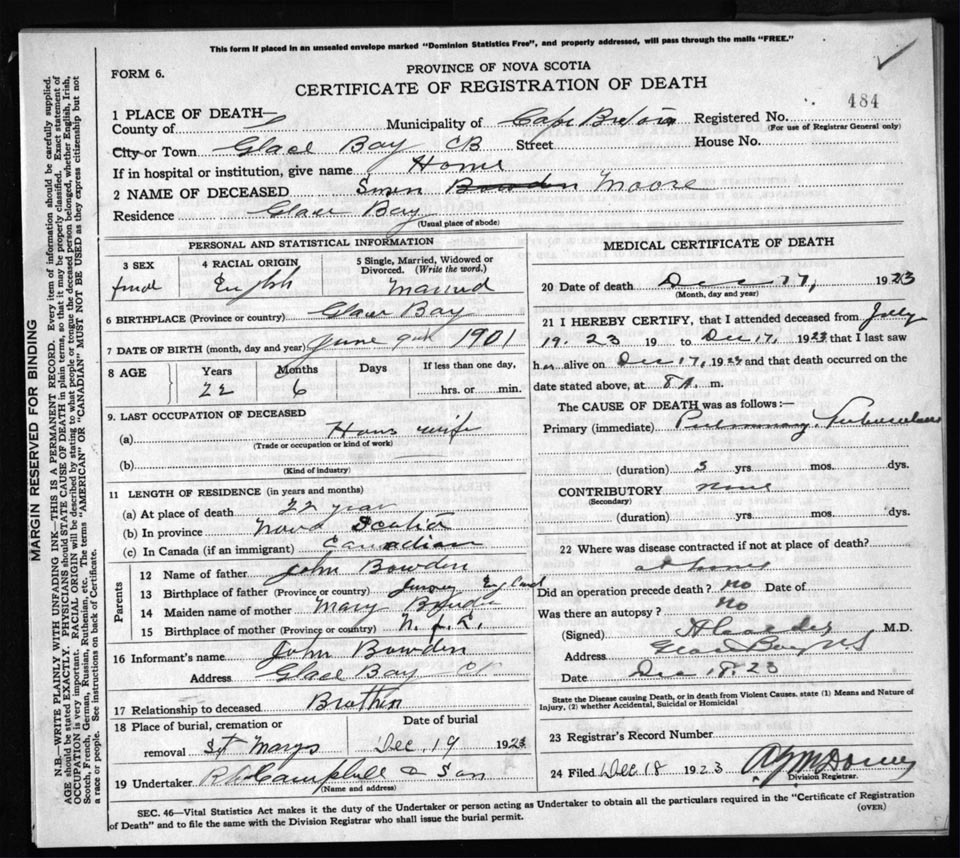 This form if placed in an unsealed envelope marked "Dominion Statistics Free", and properly addressed, will pass through the mails "FREE."
FORM 6.
PROVINCE OF NOVA SCOTIA
CERTIFICATE OF REGISTRATION OF DEATH
484
1 PLACE OF DEATH—
County of Municipality of Cape Breton Registered No.
(For use of Registrar General only)
City or Town Glace Bay CB Street House No.
If in hospital or institution, give name Home
2 NAME OF DECEASED Bowden Moore
Residence Glace Bay
(Usual place of abode)
PERSONAL AND STATISTICAL INFORMATION
3 SEX 4 RACIAL ORIGIN 5 Single, Married, Widowed or Divorced. (Write the word.)
English Married
6 BIRTHPLACE (Province or country) Glace Bay
7 DATE OF BIRTH (month, day and year) June 1901
8 AGE Years Months Days If less than one day,
22 6 hrs. or min.
9. LAST OCCUPATION OF DECEASED
(a) House wife
(Trade or occupation or kind of work)
(b)
(Kind of industry)
11 LENGTH OF RESIDENCE (in years and months)
(a) At place of death 22 year
(b) In province Nova Scotia
(c) In Canada (if an immigrant) Canadian
Parents
12 Name of father John Bowden
13 Birthplace of father (Province or country) England
14 Maiden name of mother Mary
15 Birthplace of mother (Province or country) N.f.L.
16 Informant's name John Bowden
Address Glace Bay
17 Relationship to deceased Brother
18 Place of burial, cremation or Date of burial
removal St Marys Dec. 19 1923
19 Undertaker Campbell & Son
(Name and address)
MEDICAL CERTIFICATE OF DEATH
20 Date of death Dec 17, 1923
(Month, day and year)
21 I HEREBY CERTIFY, that I attended deceased from July
19.23 19 to Dec 17, 1923 that I last saw
h alive on Dec 17, 1923 and that death occurred on
date stated above, at 8 m.
The CAUSE OF DEATH was as follows:—
Primary (immediate) Pulmonary Tuberculosis
(duration) yrs. mos. dys.
CONTRIBUTORY none
(Secondary)
(duration) yrs. mos. dys.
22 Where was disease contracted if not at place of death?
at home
Did an operation precede death? no Date of
Was there an autopsy? No
(Signed) M.D.
Address Glace Bay NS
Date Dec 18. 23
State the Disease causing Death, or in death from Violent Causes, state (1) Means and Nature of
Injury, (2) whether Accidental, Suicidal or Homicidal
23 Registrar's Record Number
24 Filed Dec 18 1923
Division Registrar.
SEC. 46—Vital Statistics Act makes it the duty of the Undertaker or person acting as Undertaker to obtain all the particulars required in the "Certificate of Registration
of Death" and to file the same with the Division Registrar who shall issue the burial permit.
(OVER)
MARGIN RESERVED FOR BINDING
N.B.—WRITE PLAINLY WITH UNFADING INK—THIS IS A PERMANENT RECORD. Every item of information should be carefully supplied.
AGE should be stated EXACTLY. PHYSICIANS should STATE CAUSE OF DEATH in plain terms, so that it may be properly classified. Exact statement of
OCCUPATION is very important. RACIAL ORIGIN will be described by stating to what people or tongue the deceased person belonged, whether English, Irish,
Scotch, French, German, Russian, Ruthenian, etc. The terms "AMERICAN" OR "CANADIAN" MUST NOT BE USED as they express citizenship but not
a race or people. See instructions on back of Certificate.